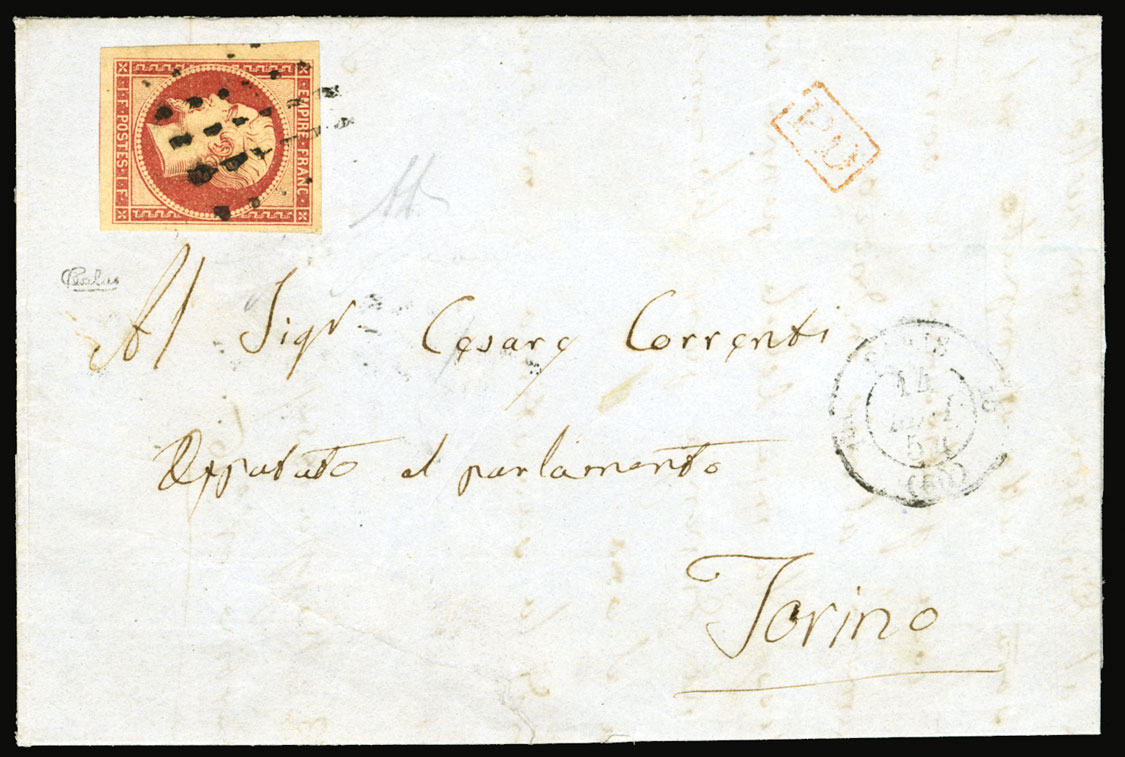 EMPIRE · FRANC ·
· I · F · POSTES · I · F ·
PD
Al Sigr Cesare Correnti
Deputato al parlamento
Torino
PARIS
14
(60)